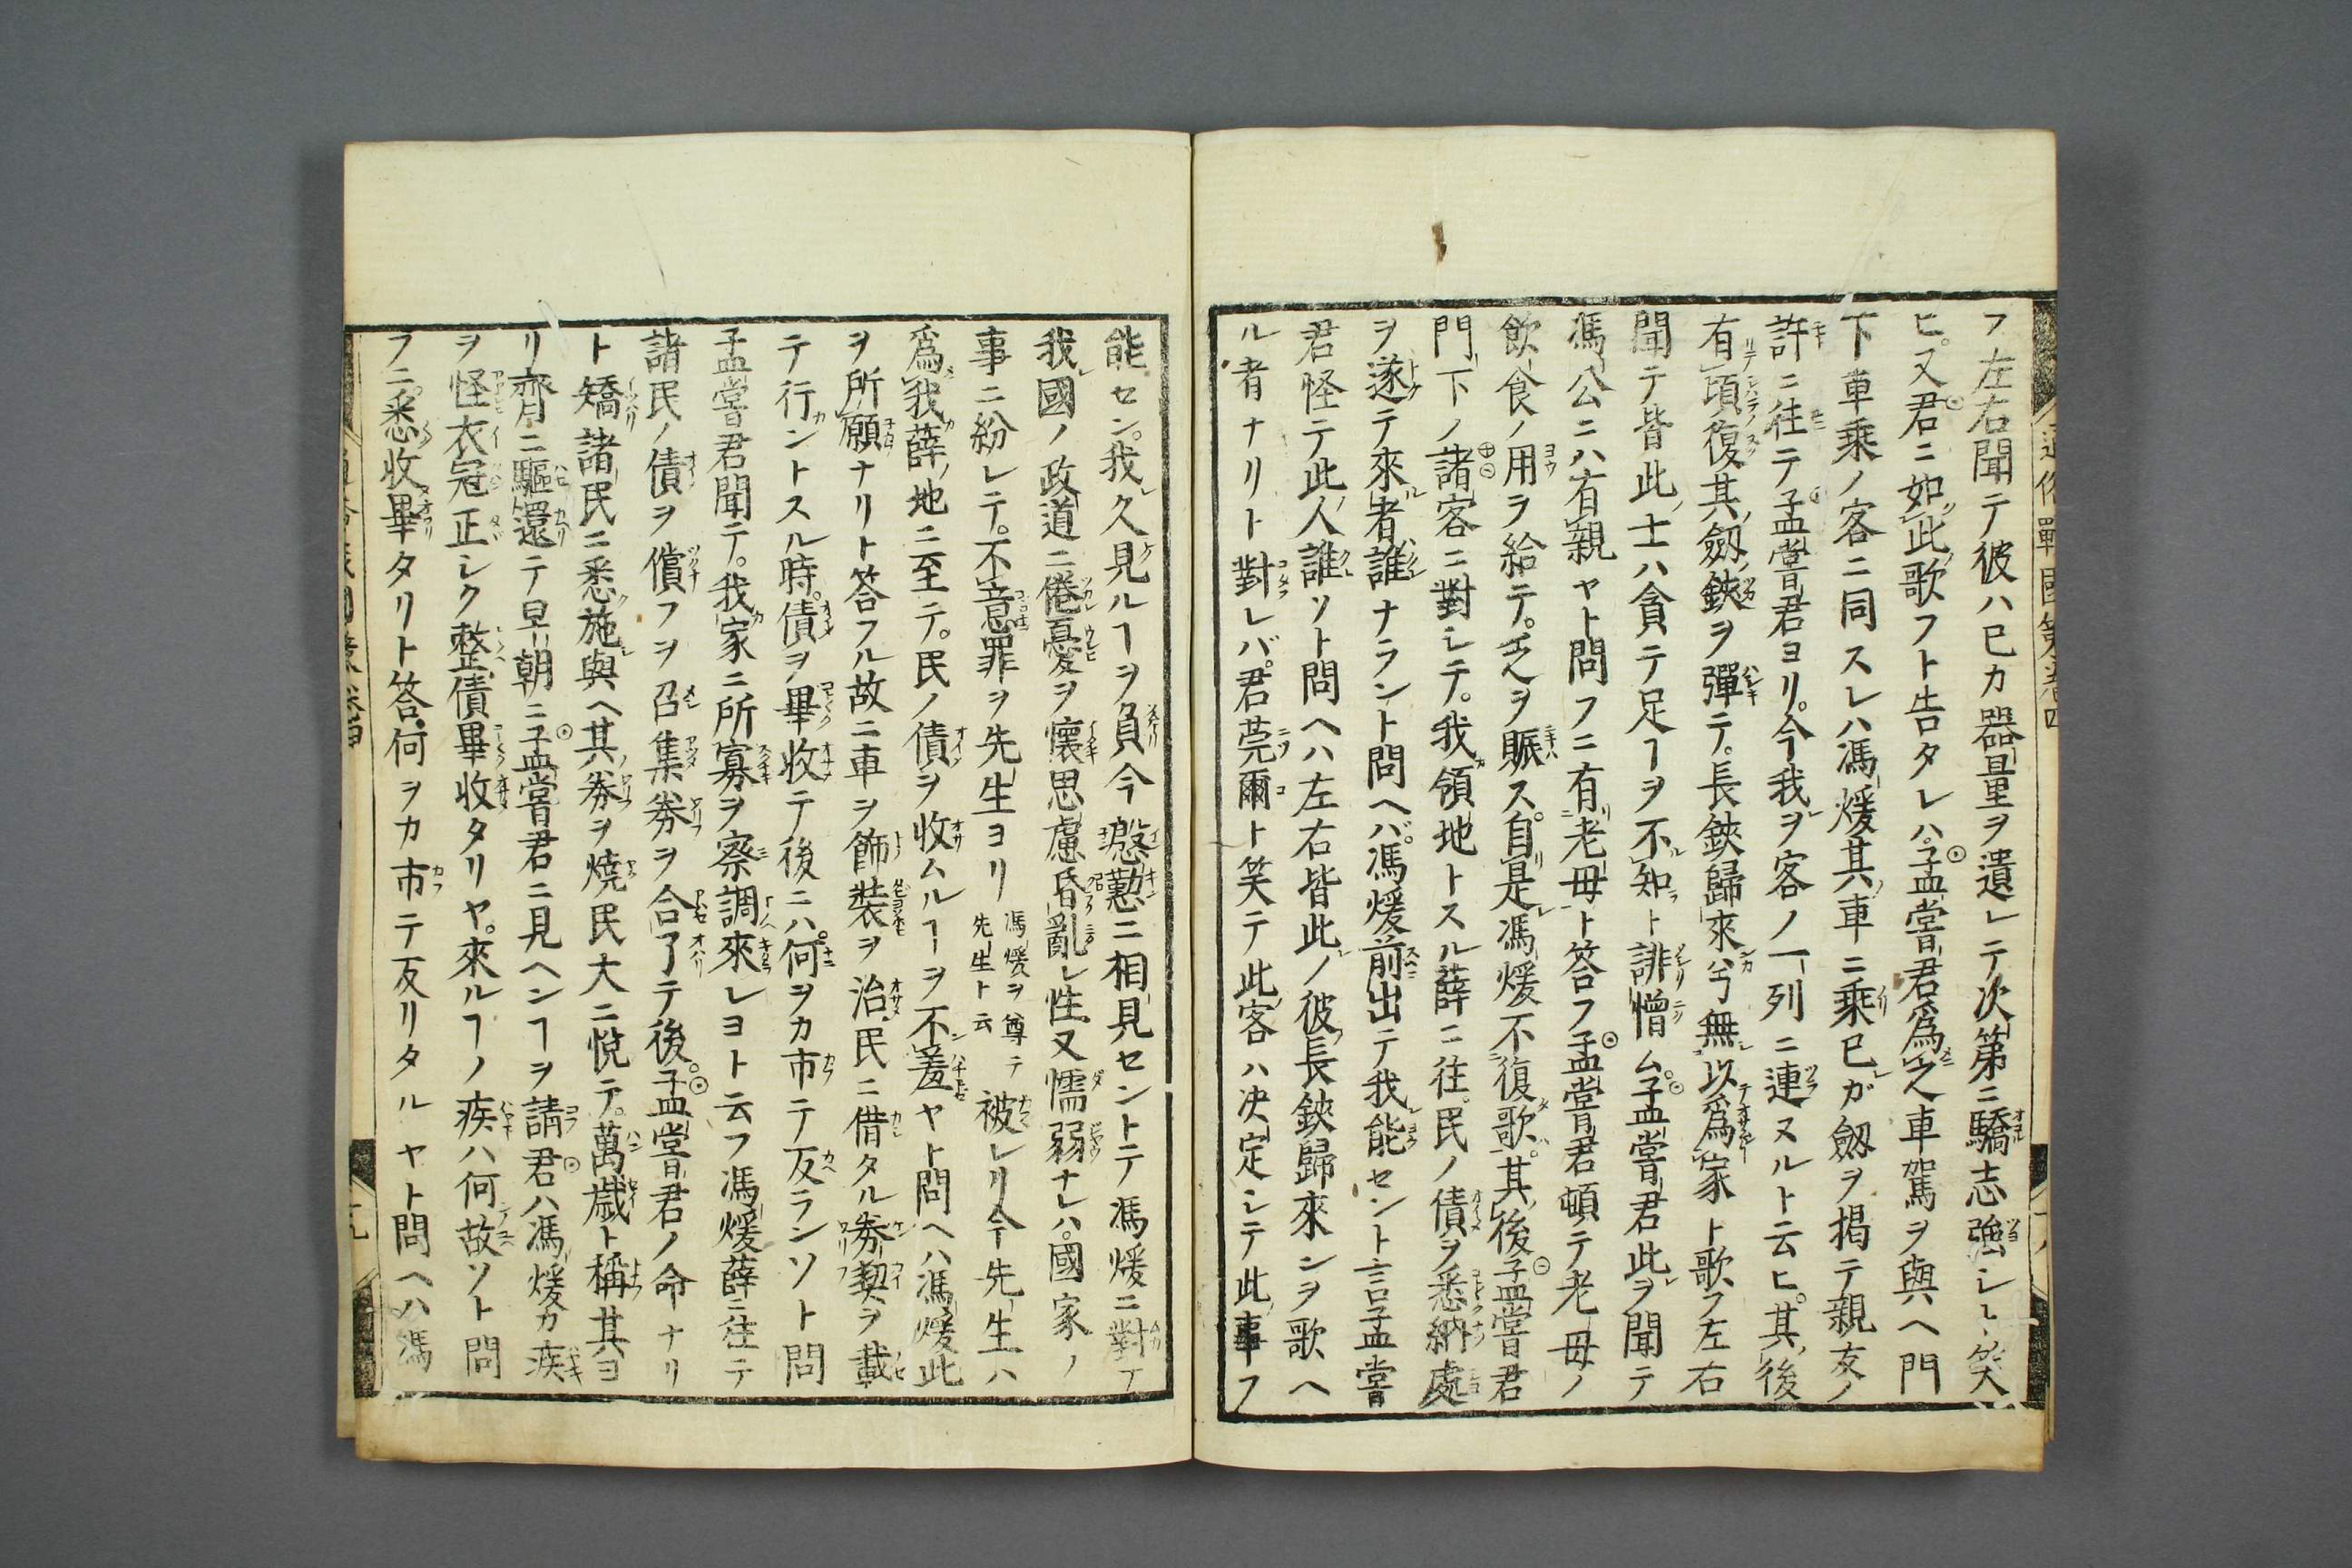 フ左右聞テ彼ハ已カ器量ヲ遺レテ次第ニ驕志強シト笑
ヒ又君ニ如此歌フト告タレハ孟嘗君爲之車駕ヲ與ヘ門
下車乘ノ客ニ同スレハ馮煖其車ニ乘已ガ劔ヲ掲テ親友ノ
許ニ往テ孟嘗君ヨリ今我ヲ客ノ一列ニ連ヌルト云ヒ其後
有頃復其劔鋏ヲ彈テ長鋏歸來兮無以爲家ト歌フ左右
聞テ皆此士ハ貪テ足ヿヲ不知ト誹憎ム孟嘗君此ヲ聞テ
馮公ニハ有親ヤト問フニ有老母ト答フ孟嘗君頓テ老母ノ
飲食ノ用ヲ給テ乏ヲ賑ス自是馮煖不復歌其後孟嘗君
門下ノ諸客ニ對シテ我領地トスル薛ニ往民ノ債ヲ悉納處
ヲ遂テ來者誰ナラント問ヘバ馮煖前出テ我能セント言孟嘗
君怪テ此人誰ソト問ヘハ左右皆此ノ彼長鋏歸來ンヲ歌ヘ
ル者ナリト對レバ君莞爾ト笑テ此客ハ决定シテ此事フ
能セン我久見ルヿヲ負今慇懃ニ相見セントテ馮煖ニ對テ
我國ノ政道ニ倦憂ヲ懷思慮昏亂レ性又懦弱ナレハ國家ノ
事ニ紛レテ不意罪ヲ先生ヨリ馮煖ヲ尊テ先生ト云被レリ今先生ハ
爲我薛地ニ至テ民ノ債ヲ收ムルヿヲ不羞ヤト問ヘハ馮煖此
ヲ所願ナリト答フル故ニ車ヲ飾裝ヲ治民ニ借タル券契ヲ載
テ行ントスル時債ヲ畢收テ後ニハ何ヲカ市テ反ランソト問
孟嘗君聞テ我家ニ所寡ヲ察調來レヨト云フ馮煖薛ニ往テ
諸民ノ債ヲ償フヲ召集券ヲ合了テ後孟嘗君ノ命ナリ
ト矯諸民ニ悉施與ヘ其券ヲ燒民大ニ悅テ萬歲ト稱其ヨ
リ齊ニ驅還テ早朝ニ孟嘗君ニ見ヘンヿヲ請君ハ馮煖カ疾
ヲ怪衣冠正シク整債畢收タリヤ來ルヿノ疾ハ何故ソト問
フニ悉收畢タリト答何ヲカ市テ反リタルヤト問ヘハ馮